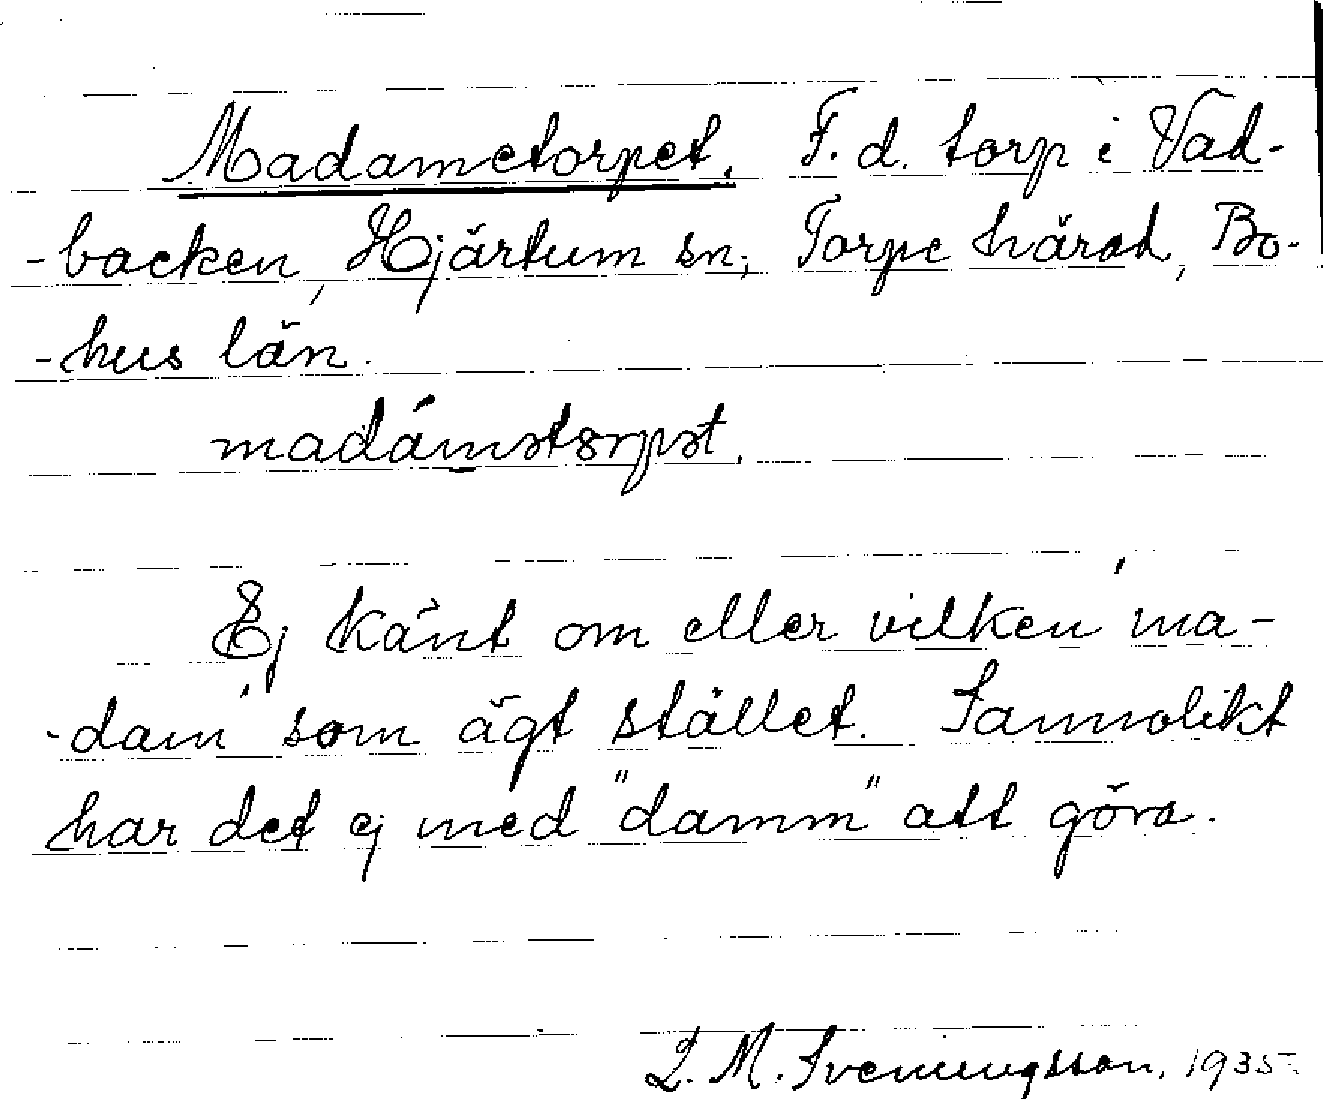 Madametorpet. F. d. torp i Vad-
-backen, Hjärtum sn, Torpe härad, Bo-
-hus län.
madámətɔrpət.
Ej känt om eller vilken 'ma-
-dam' som ägt stället. Sannolikt
har det ej med "damm" att göra.
L. M. Svenungsson, 1935.